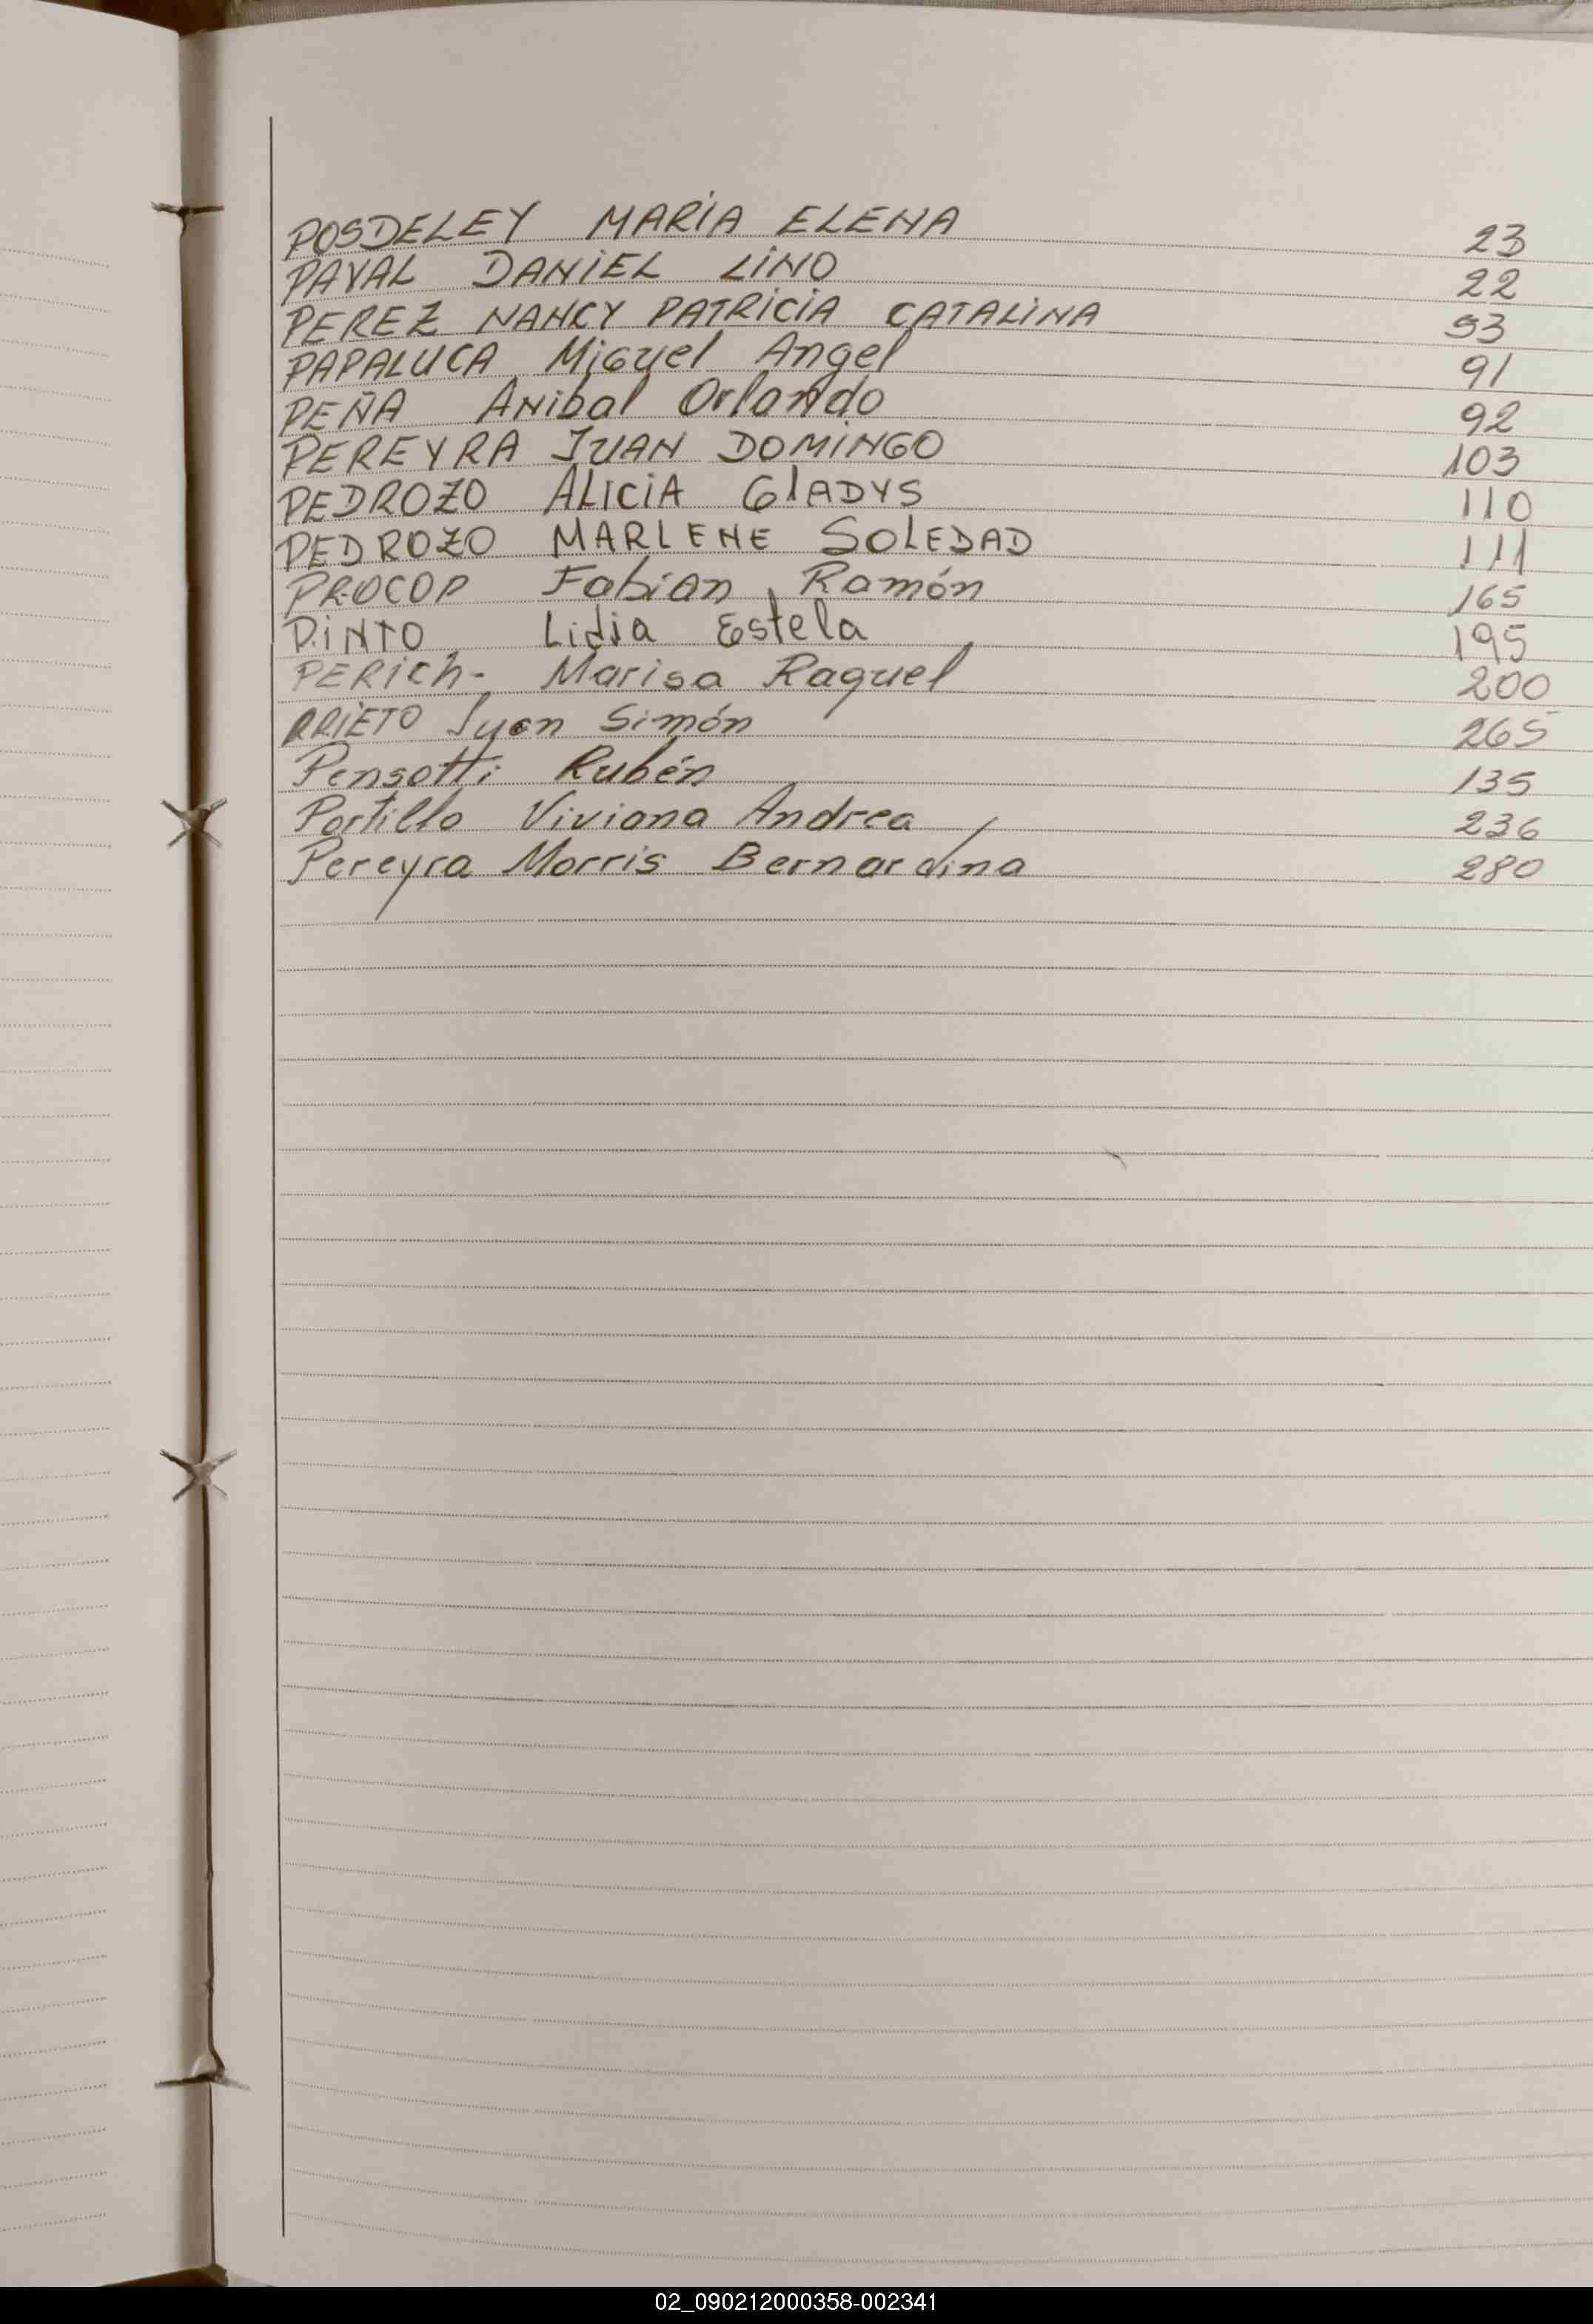 POSDELEY MARIA ELENA 23
PAVAL DANIEL LINO 22
PEREZ NANCY PATRICIA CATALINA 53
PAPALUCA Miguel Angel 91
PEÑA Anibal Orlando 92
PEREYRA JUAN DOMINGO 103
PEDROZO ALICIA GlADYS 110
PEDROZO MARLENE SOLEDAD 111
PROCOP Fabian Ramón 165
PINTO Lidia Estela 195
PERICh- Marisa Raquel 200
PRIETO Juan Simón 265
Pensotti Rubén 135
Portillo Viviana Andrea 236
Pereyra Morris Bernardina 280
02_090212000358-002341